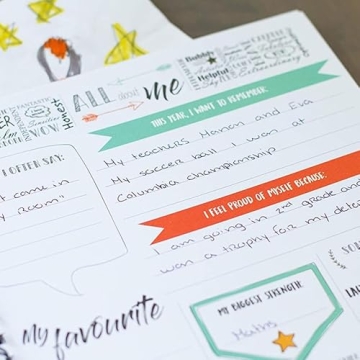 ALL about me
Honest
Buddy
Helpful
THIS YEAR, I WANT TO REMEMBER:
My teachers Manon and Eva
My soccer ball I won at
Columbia championship
I OFTEN SAY:
come in
room"
I FEEL PROUD OF MYSELF BECAUSE:
I am going in 2nd grade and
won a trophy for my
my favourite
MY BIGGEST STRENGTH:
Maths